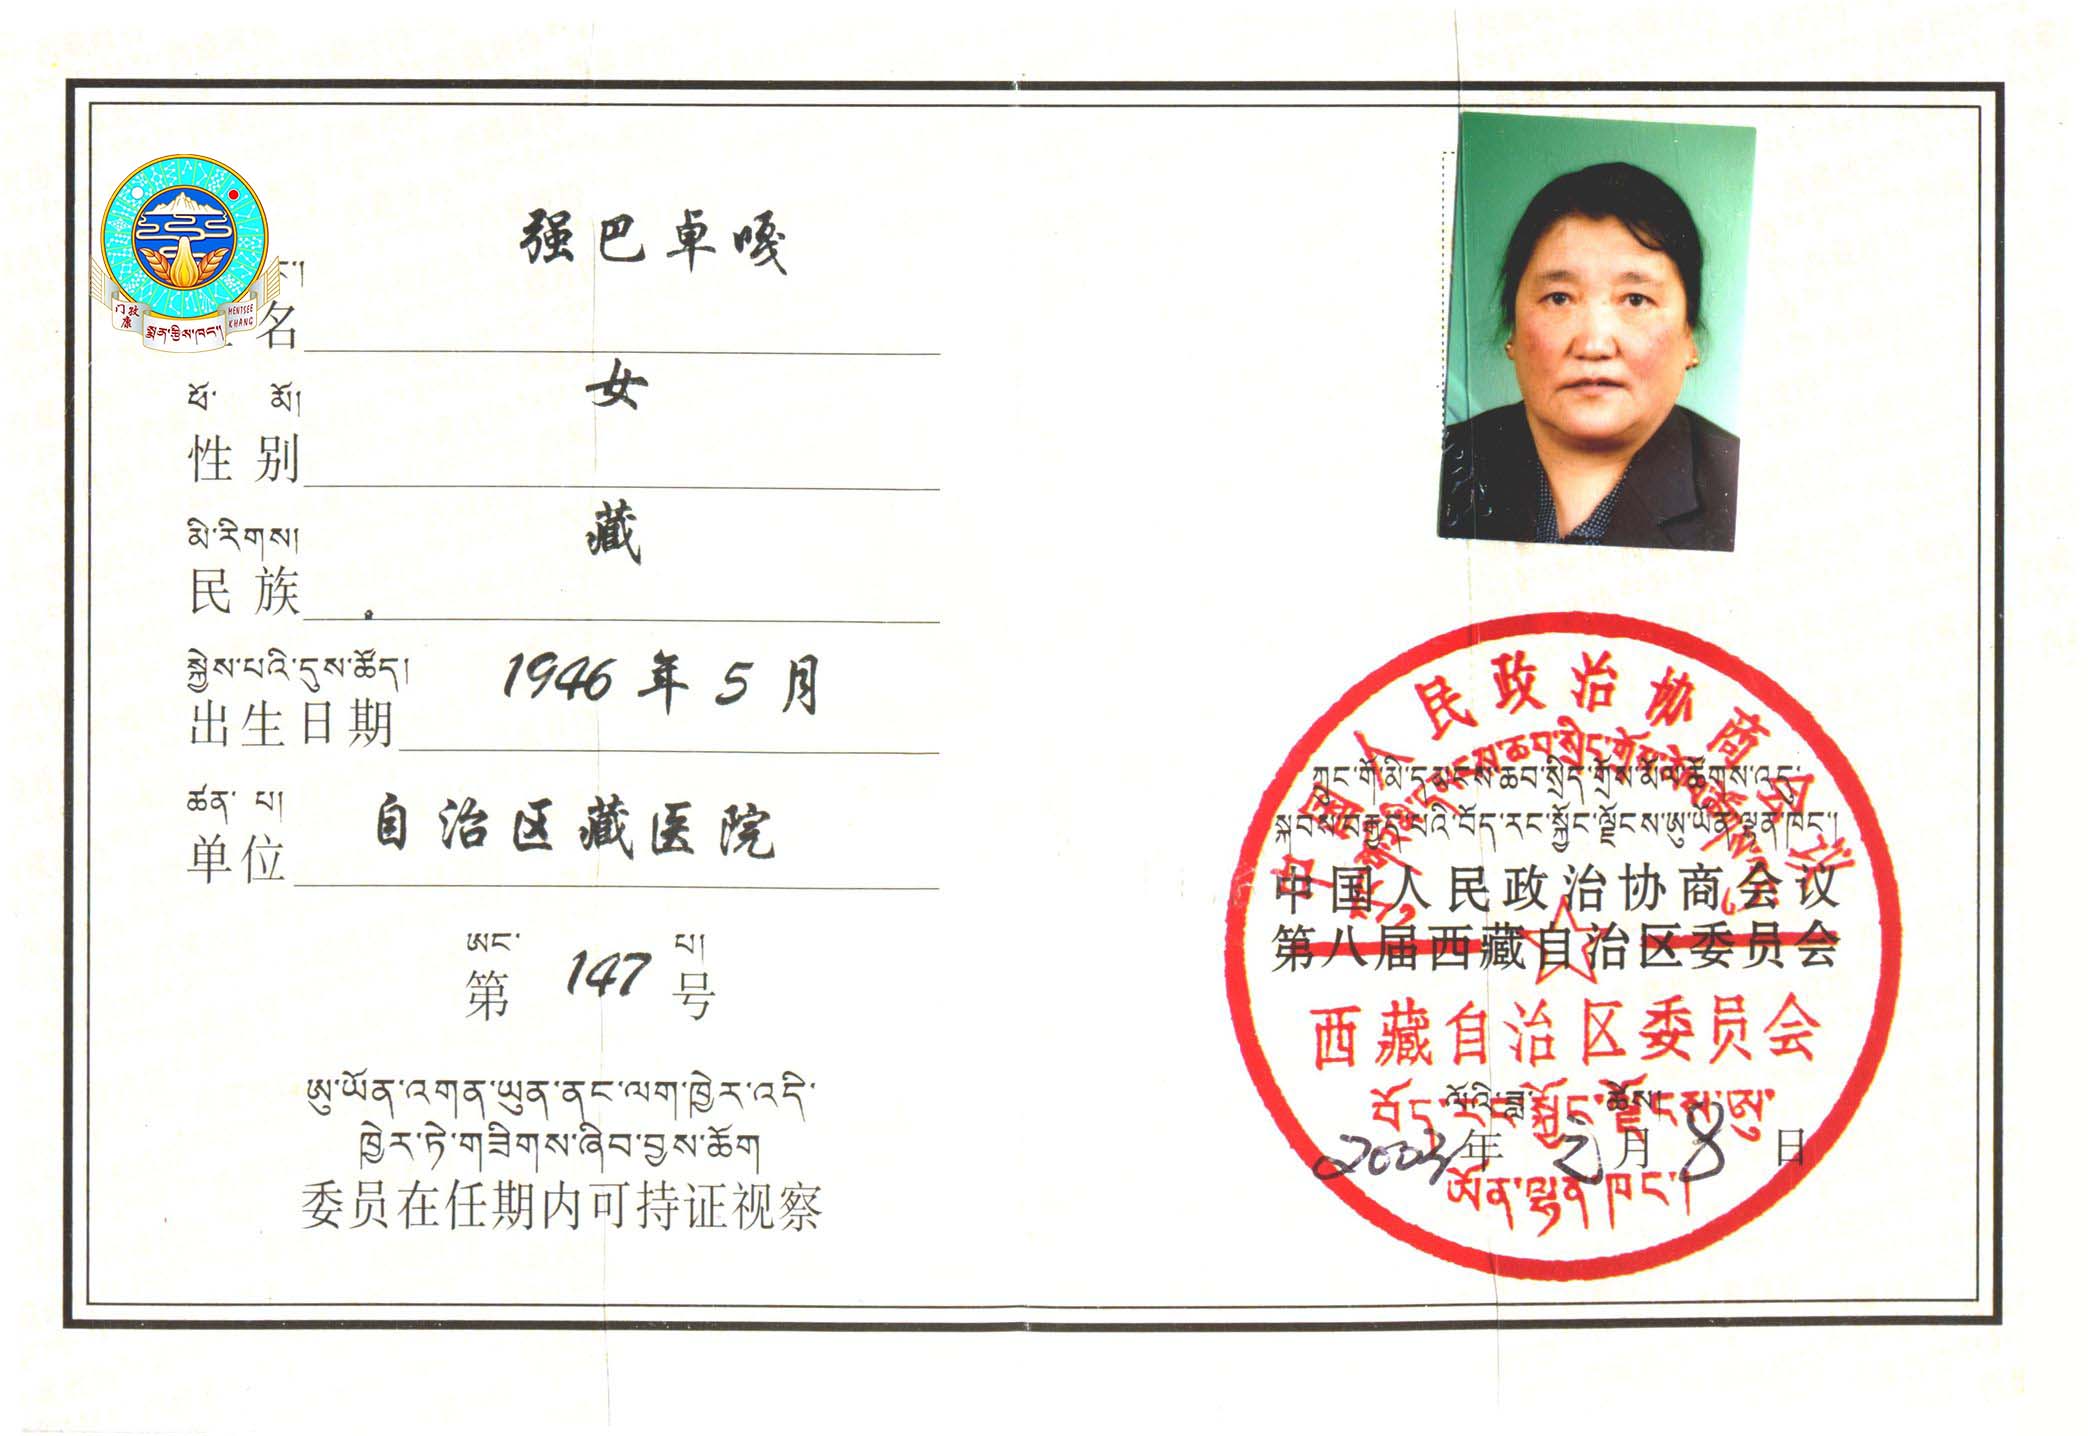 门孜康
MENTSEE KHANG
སྨན་རྩིས་ཁང་།
名 强巴卓嘎
ཕོ་ མོ།
性别 女
མི་རིགས།
民族 藏
སྐྱེས་པའི་དུས་ཚོད།
出生日期 1946年5月
ཚན་ པ།
单位 自治区藏医院
ཨང་ པ།
第 147 号
ཨུ་ཡོན་འགན་ཡུན་ནང་ལག་ཁྱེར་འདི་
ཁྱེར་ཏེ་གཟིགས་ཞིབ་བྱས་ཆོག
委员在任期内可持证视察
中国人民政治协商会议
ཀྲུང་གོ་མི་དམངས་ཆབ་སྲིད་གྲོས་མོལ་ཚོགས་འདུ་
སྐབས་བརྒྱད་པའི་བོད་རང་སྐྱོང་ལྗོངས་ཨུ་ཡོན་ལྷན་ཁང་།
中国人民政治协商会议
第八届西藏自治区委员会
西藏自治区委员会
བོད་རང་སྐྱོང་ལྗོངས་ཨུ་
ལོའི་ཟླ་ ཚེས།
年 2月8日
ཡོན་ལྷན་ཁང་།